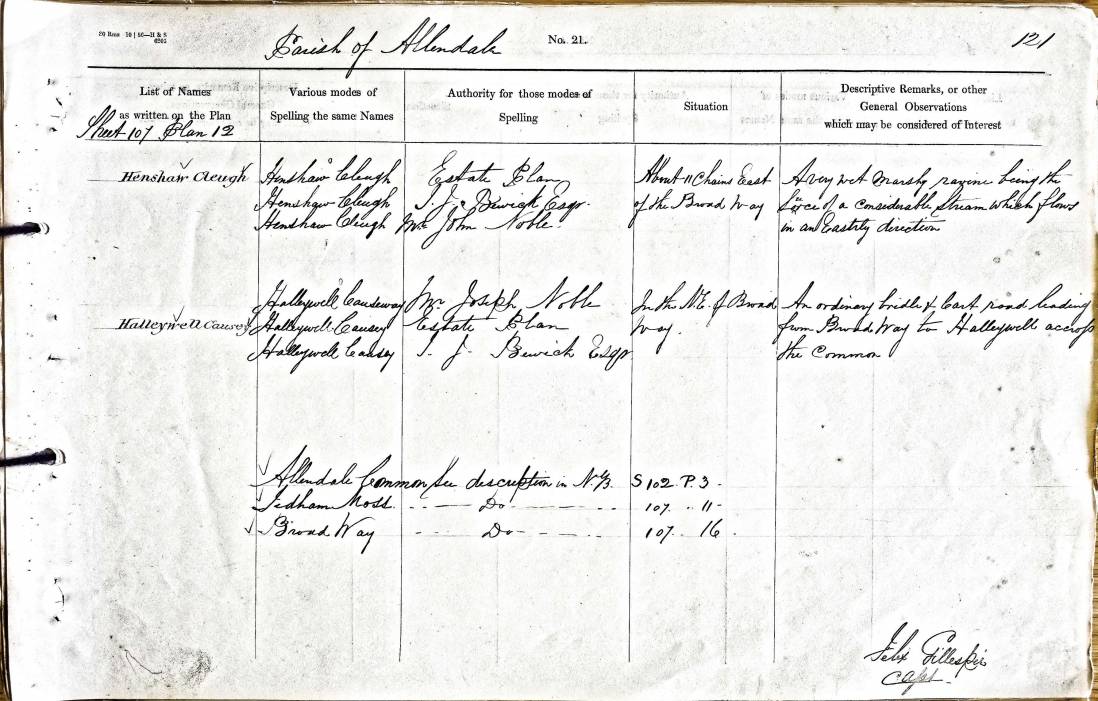 20 Rms 10 | 56—H & S
6205
Parish of Allendale
No. 21.
121
List of Names
as written on the Plan
Various modes of
Spelling the same Names
Authority for those modes of
Spelling
Situation
Descriptive Remarks, or other
General Observations
which may be considered of Interest
Sheet 107 Plan 12
Henshaw Cleugh
Henshaw Cleugh Estate Plan
Henshaw Cleugh T. J. Bewick Esqr.
Henshaw Cleugh Mr John Noble.
About 11 Chains East
of the Broad Way
A very wet Marshy ravine being the
Source of a considerable Stream which flows
in an Eastrly direction
Halleywell Causey
Halleywell Causeway Mr Joseph Noble
Halleywell Causey Estate Plan
Halleywell Causey T. J. Bewick Esqr
In the N.E. of Broad
Way.
An ordinary bridle & Cart road leading
from Broad Way to Halleywell across
the Common
Allendale Common See description in N.B. S 102 P. 3
Tedham Moss Do 107 11
Broad Way Do 107 16
Felix Gillespie
Capt.